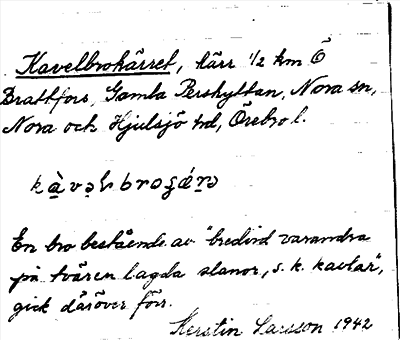 Kavelbrokärret, kärr 1/2 km Ö
Brattfors, Gamla Pershyttan, Nora sn,
Nora och Hjulsjö hd, Örebro l.
En bro bestående av "bredvid varandra
på tvären lagda slanor, s. k. kavlar",
gick däröver förr.
Kerstin Larsson 1942